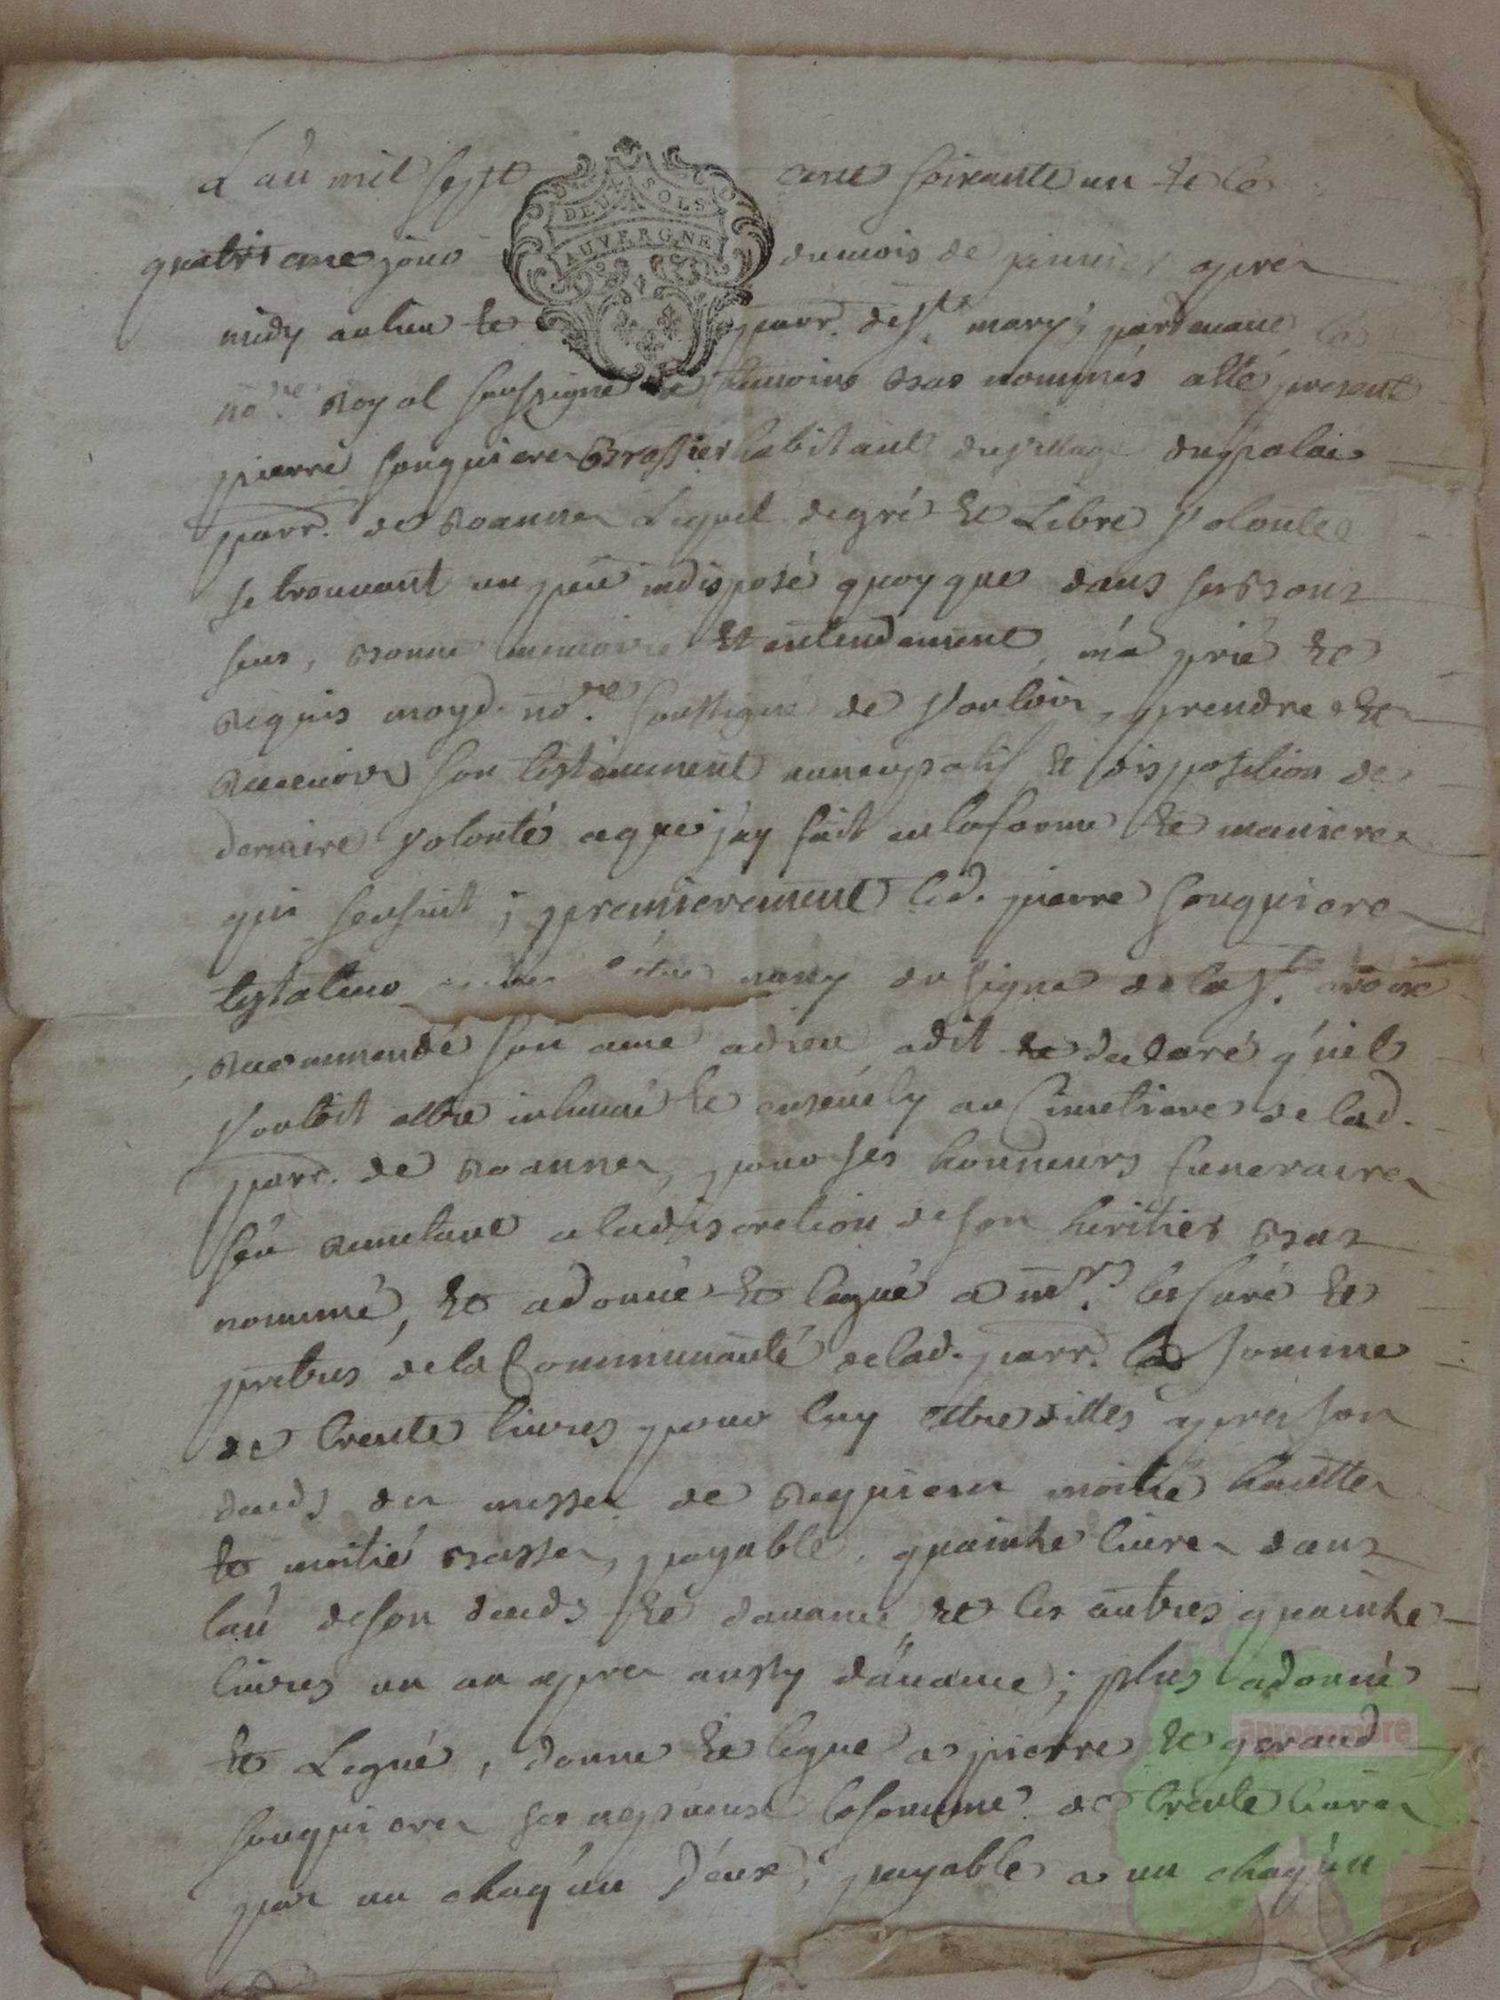 L'an mil sept cent soixante un et le
quatrieme jour du mois de janvier apres
DEUX SOLS
AUVERGNE
midy au lieu et parr. de St. mary, pardevant le
no.re Royal soussigné et temoins bas nommés a été present
pierre souquiere Brassier habitant du village du palai
parr. de Roannes Lequel de gré et Libre volonté
se trouvant un peu indisposé quoyque dans ses bons
sens, bonne memoire et entendement, m'a prié et
Requis moyd. no.re soussigné de vouloir prendre et
Recevoir son testament noncupatif et disposition de
derniere volonté ce que j'ay fait en la forme et maniere
qui sensuit; premierement led. pierre souquiere
testateur muny du signe de la Ste. croix
Recommandé son ame a dieu a dit et declaré qu'il
vouloit etre inhumé et ensevely au Cimetiere de lad.
parr. de Roannes, pour ses honneurs funeraires
s'en Remetant a la discretion de son heritier bas
nommé, et a donné et legué a mrs. les curé et
pretres de la Communauté de lad. parr. la somme
de trente livres pour luy etre dittes apres son
deceds des messes de Requiem moitié hautes
et moitié basses, payable, quinze livres dans
l'an de son deceds et d'avance et les autres quinze
livres un an apres aussy d'avance; plus a donné
et Legué, donne et legue a pierre et geraud
souquieres ses nepveux la somme de trente livres
par un chaq'un d'eux, payable a un chaq'un
aprogemere